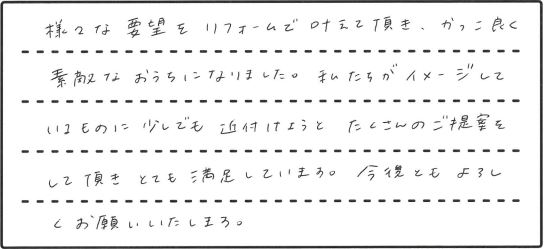 様々な要望をリフォームで叶えて頂き、かっこ良く
素敵なおうちになりました。私たちがイメージして
いるものに少しでも近付けようと たくさんのご提案を
して頂き とても満足しています。今後ともよろし
くお願いいたします。